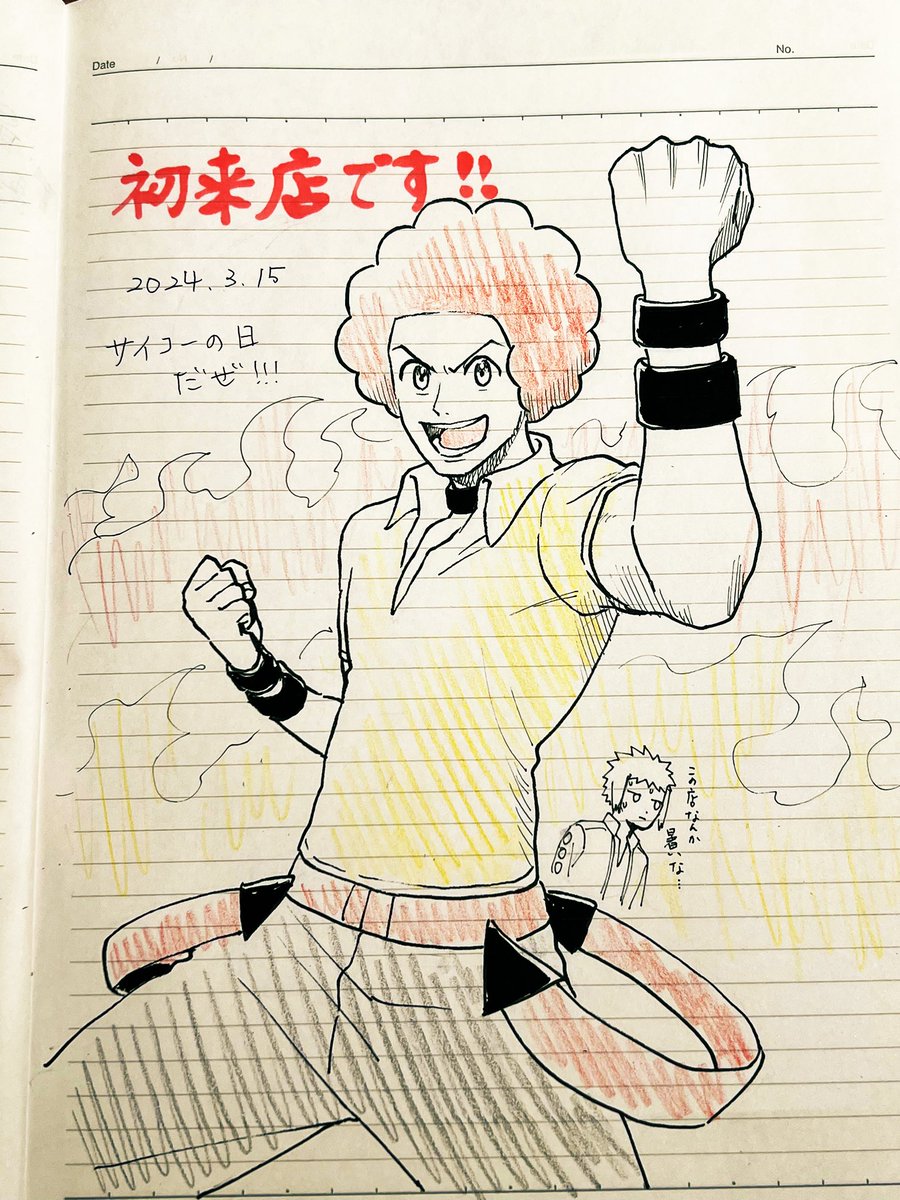 Date / /
No.
初来店です!!
2024.3.15
サイコーの日
だぜ!!!
この店なんか
暑いな…